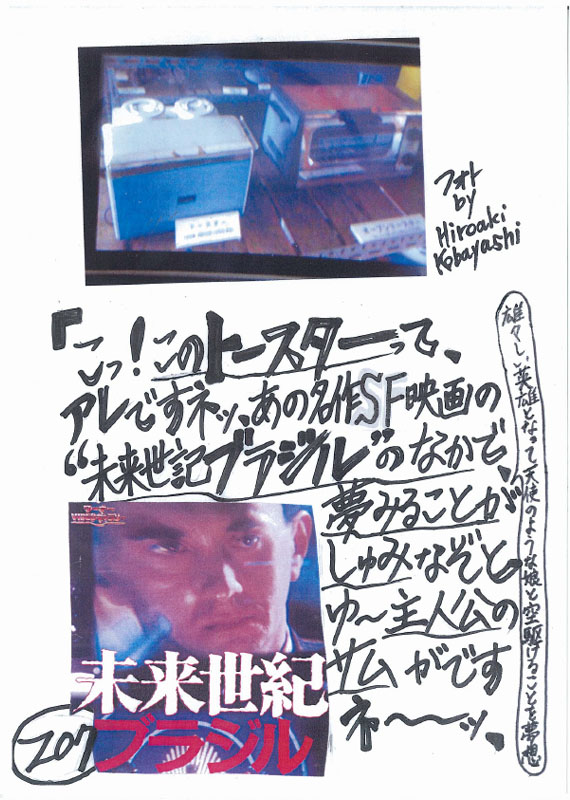 トースター
フォト
by
Hiroaki
Kobayashi
『こっ！このトースターって、
アレですネッ、あの名作SF映画の
“未来世記ブラジル”のなかで、
夢みることが
しゅみなぞと
ゆ〜主人公の
サムがです
ネ〜〜ッ、
雄々しい英雄となって天使のような娘と空駆けることを夢想
未来世紀
ブラジル
207